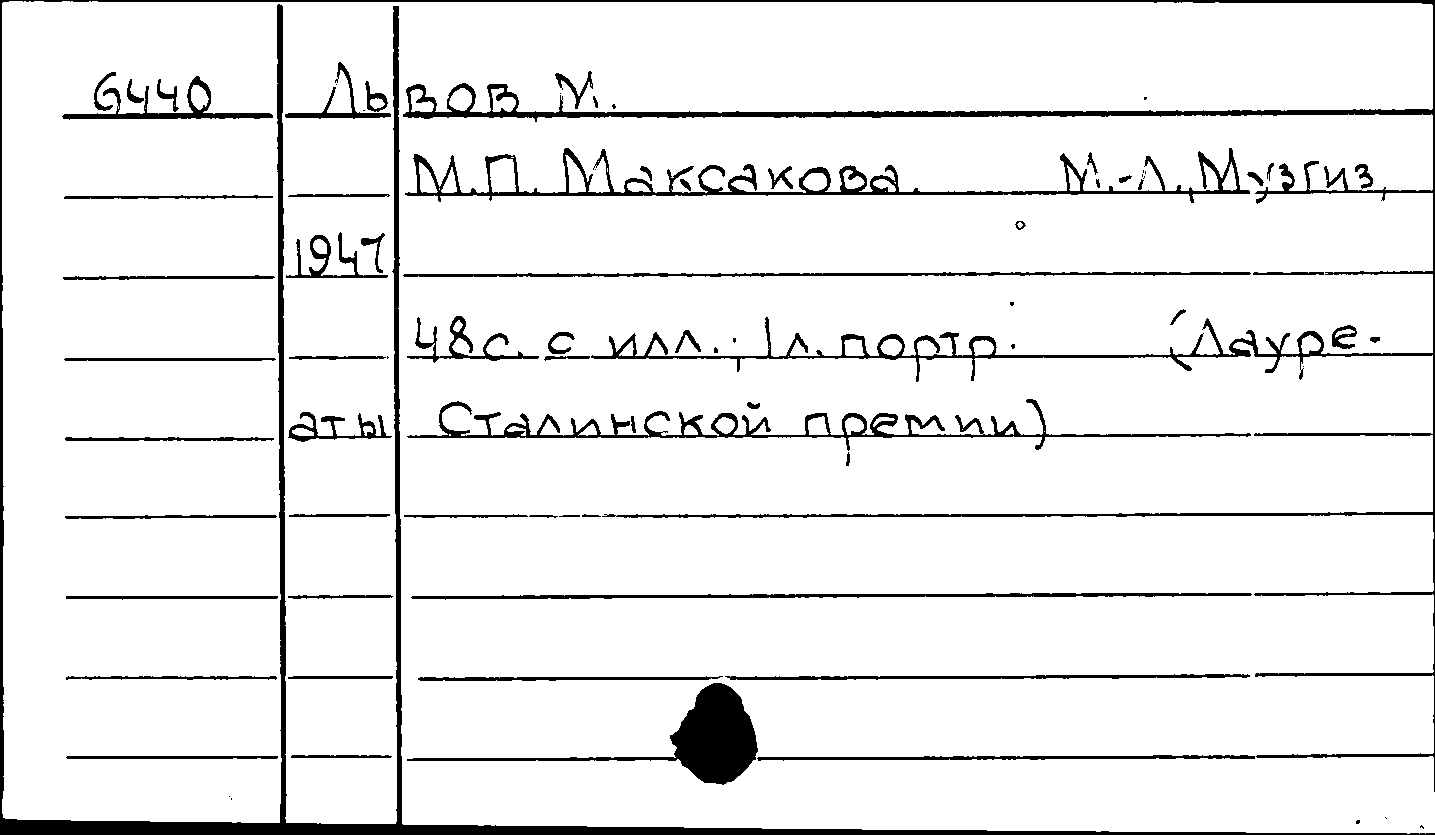 6440 Львов, М.
М.П. Максакова. М.-Л., Музгиз,
1947
48с. с илл.; 1 л. портр. (Лауре-
аты Сталинской премии)